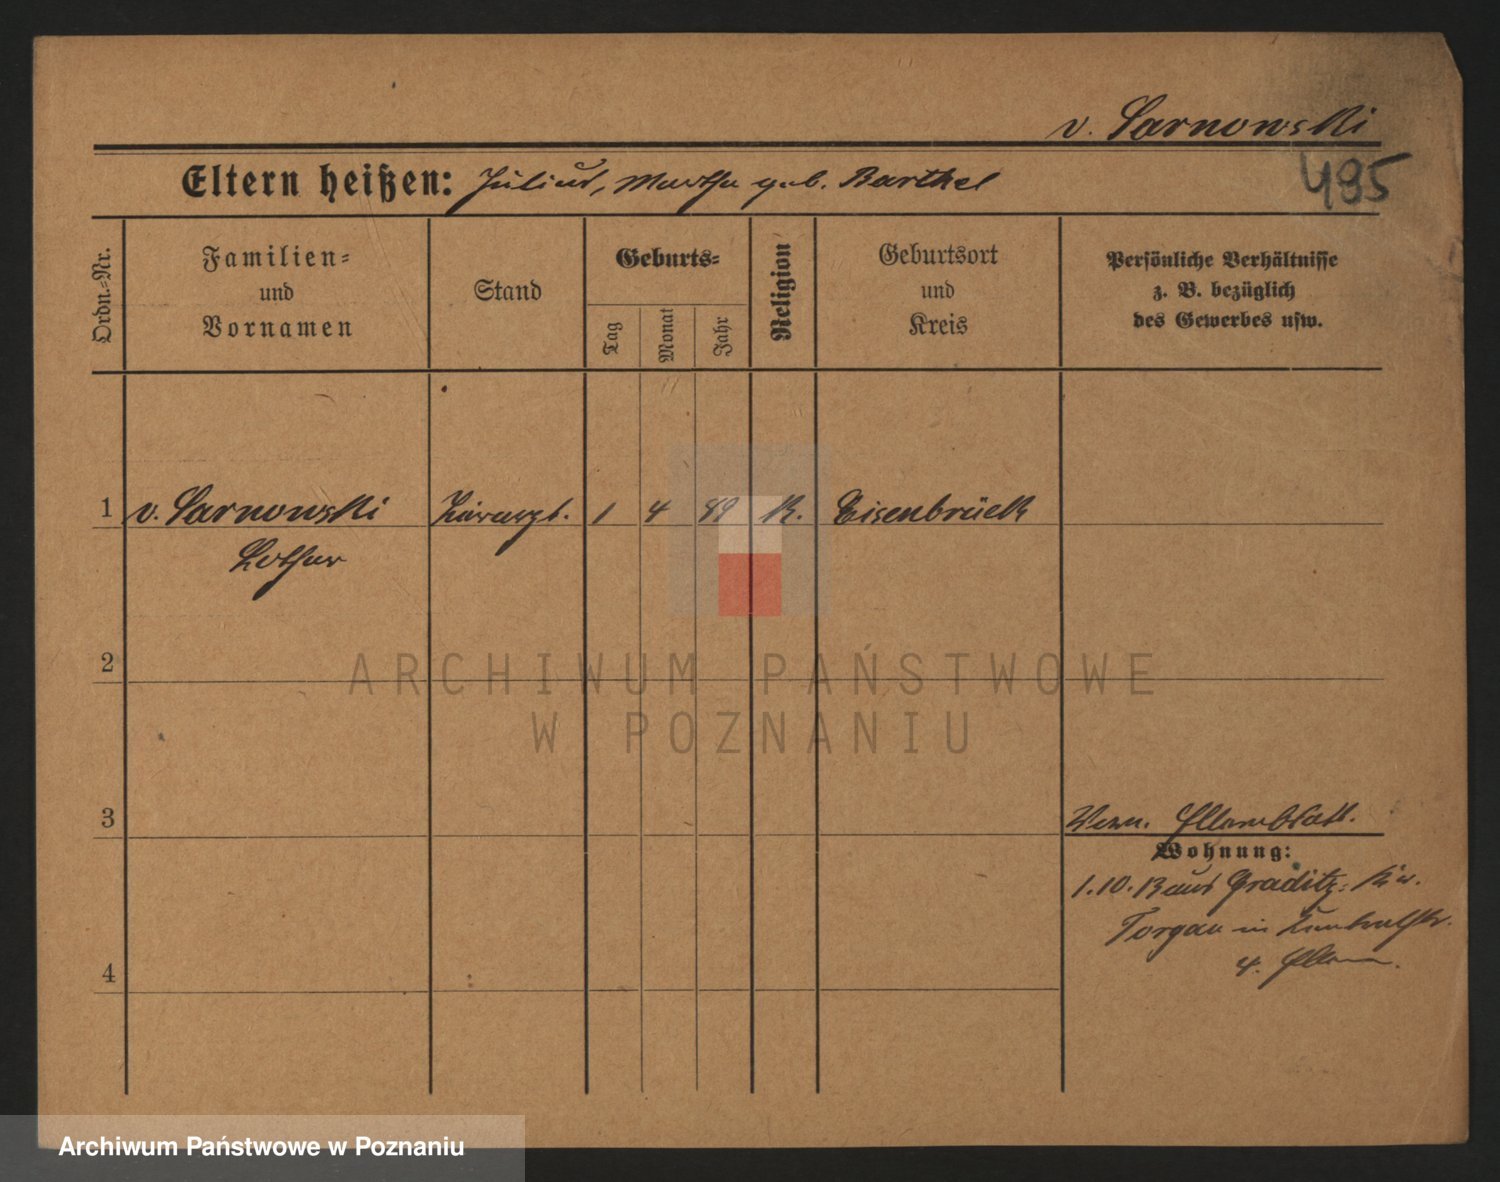 v. Sarnowski
495
Eltern heißen: Julius, Martha geb. Barthel
Ordn.-Nr.
Familien- und Vornamen
Stand
Geburts-
Tag
Monat
Jahr
Religion
Geburtsort und Kreis
Persönliche Verhältnisse z. B. bezüglich des Gewerbes usw.
1 v. Sarnowski 1 4 89 K. Eisenbrück
Lothar
2
ARCHIWUM PAŃSTWOWE
W POZNANIU
3
Wohnung:
1.10.13 aus Graditz, Kr.
Torgau in
4
4.
Archiwum Państwowe w Poznaniu